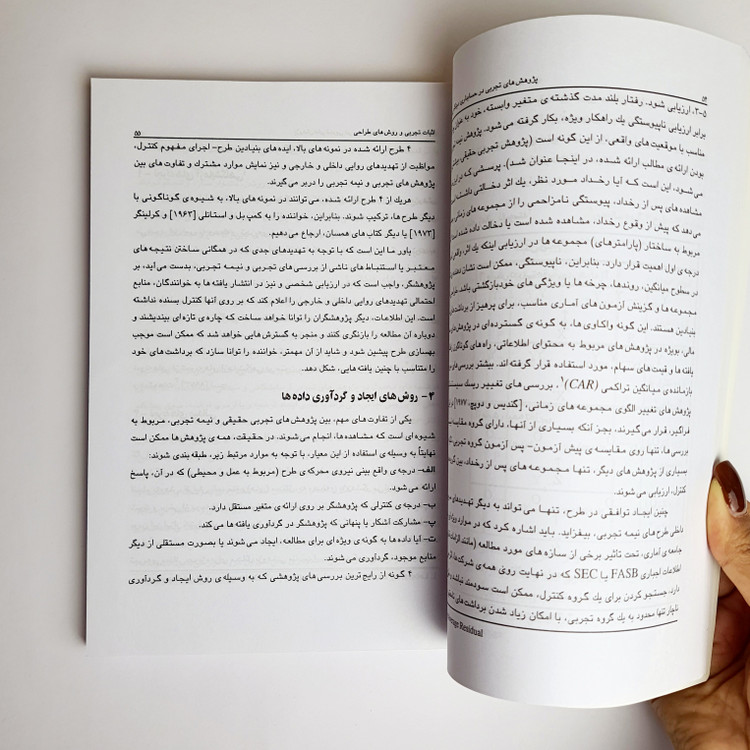 ۵۴ پژوهش های تجربی در حسابداری
۳-۵. ارزیابی شود. رفتار بلند مدت گذشته ی متغیر وابسته، خود به عنوان
برابر ارزیابی ناپیوستگی یك راهکار ویژه، بکار گرفته می شود. پژوهش تجربی
مناسب با موقعیت های واقعی، از این گونه است (پژوهش تجربی حقیقی،
بودن ارائه ی مطالب ارائه شده، در اینجا عنوان شد). پرسشی که در این
می شود، این است که آیا رخداد مورد نظر، یك اثر دخالتی داشته است
مشاهده های پس از رخداد، پیوستگی نامزاحمی را از مجموعه های زمانی
می دهد که پیش از وقوع رخداد، مشاهده شده است یا دخالت داده شده
مربوط به ساختار (پارامترهای) مجموعه ها در ارزیابی اینکه یك اثر، واقعی
درجه ی اول اهمیت قرار دارد. بنابراین، ناپیوستگی، ممکن است نشان دهنده ی
در سطوح میانگین، روندها، چرخه ها یا ویژگی های خودبازگشتی باشد.
مجموعه ها و گزینش آزمون های آماری مناسب، برای پرهیز از برداشت های
بنیادین هستند. این گونه واکاوی ها، به گونه ی گسترده ای در پژوهش های
مالی، بویژه در پژوهش های مربوط به محتوای اطلاعاتی، راه های گوناگون
یافته ها و قیمت های سهام، مورد استفاده قرار گرفته اند. بیشتر بررسی های
بازمانده ی میانگین تراکمی (CAR)۱، بررسی های تغییر ریسك سیستماتیك
پژوهش های تغییر الگوی مجموعه های زمانی، [گندیس و دوپچ، ۱۹۷۷] و
فراگیر، قرار می گیرند، بجز آنکه بسیاری از آنها، دارای گروه مقایسه
بررسی ها، تنها روی مقایسه ی پیش آزمون- پس آزمون گروه تجربی
بسیاری از پژوهش های دیگر، تنها مجموعه های پس از رخداد، بین گروه
کنترل، ارزیابی می شوند.
چنین ایجاد توافقی در طرح، تنها می تواند به دیگر تهدیدهای
داخلی طرح های نیمه تجربی، بیفزاید. باید اشاره کرد که در موارد ویژه
جامعه ی آماری، تحت تأثیر برخی از سازه های مورد مطالعه (مانند الزامات
اطلاعات اجباری FASB یا SEC که در نهایت روی همه ی شرکت ها، اثر
دارد. جستجو کردن برای یك گروه کنترل، ممکن است سودمند نباشد و
ناچار تنها محدود به یك گروه تجربی، با امکان زیاد شدن برداشت های
Average Residual
اثبات تجربی و روش های طراحی ۵۵
۴ طرح ارائه شده در نمونه های بالا، ایده های بنیادین طرح- اجرای مفهوم کنترل،
مواظبت از تهدیدهای روایی داخلی و خارجی و نیز نمایش موارد مشترك و تفاوت های بین
پژوهش های تجربی و نیمه تجربی را دربر می گیرند.
هریك از ۴ طرح ارائه شده، می توانند در نمونه های بالا، به شیوه ی گوناگونی با
دیگر طرح ها، ترکیب شوند. بنابراین، خواننده را به کمپ بل و استانلی [۱۹۶۳] و کرلینگر
[۱۹۷۳] یا دیگر کتاب های همسان، ارجاع می دهیم.
باور ما این است که با توجه به تهدیدهای جدی که در همگانی ساختن نتیجه های
معتبر یا استنباط های ناشی از بررسی های تجربی و نیمه تجربی، بدست می آید، بر
پژوهشگر، واجب است که در ارزیابی شخصی و نیز در انتشار یافته ها به خوانندگان، منابع
احتمالی تهدیدهای روایی داخلی و خارجی را اعلام کند که بر روی آنها کنترل بسنده نداشته
است. این اطلاعات، دیگر پژوهشگران را توانا خواهد ساخت که چاره ی تازه ای بیندیشند و
دوباره آن مطالعه را بازنگری کنند و منجر به گسترش هایی خواهد شد که ممکن است موجب
بهسازی طرح پیشین شود و شاید از آن مهمتر، خواننده را توانا سازد که برداشت های خود
متناسب با چنین یافته هایی، شکل دهد.
۴- روش های ایجاد و گردآوری داده ها
یکی از تفاوت های مهم، بین پژوهش های تجربی حقیقی و نیمه تجربی، مربوط به
شیوه ای است که مشاهده ها، انجام می شوند. در حقیقت، همه ی پژوهش ها ممکن است
نهایتاً به وسیله ی استفاده از این معیار، با توجه به موارد مرتبط زیر، طبقه بندی شوند:
الف- درجه ی واقع بینی نیروی محرکه ی طرح (مربوط به عمل و محیطی) که در آن، پاسخ
ارائه می شود.
ب- درجه ی کنترلی که پژوهشگر بر روی ارائه ی متغیر مستقل دارد.
پ- مشارکت آشکار یا پنهانی که پژوهشگر در گردآوری یافته ها می کند.
ت- آیا داده ها به گونه ی ویژه ای برای مطالعه، ایجاد می شوند یا بصورت مستقلی از دیگر
منابع موجود، گردآوری می شوند.
۴ گونه از رایج ترین بررسی های پژوهشی که به وسیله ی روش ایجاد و گردآوری